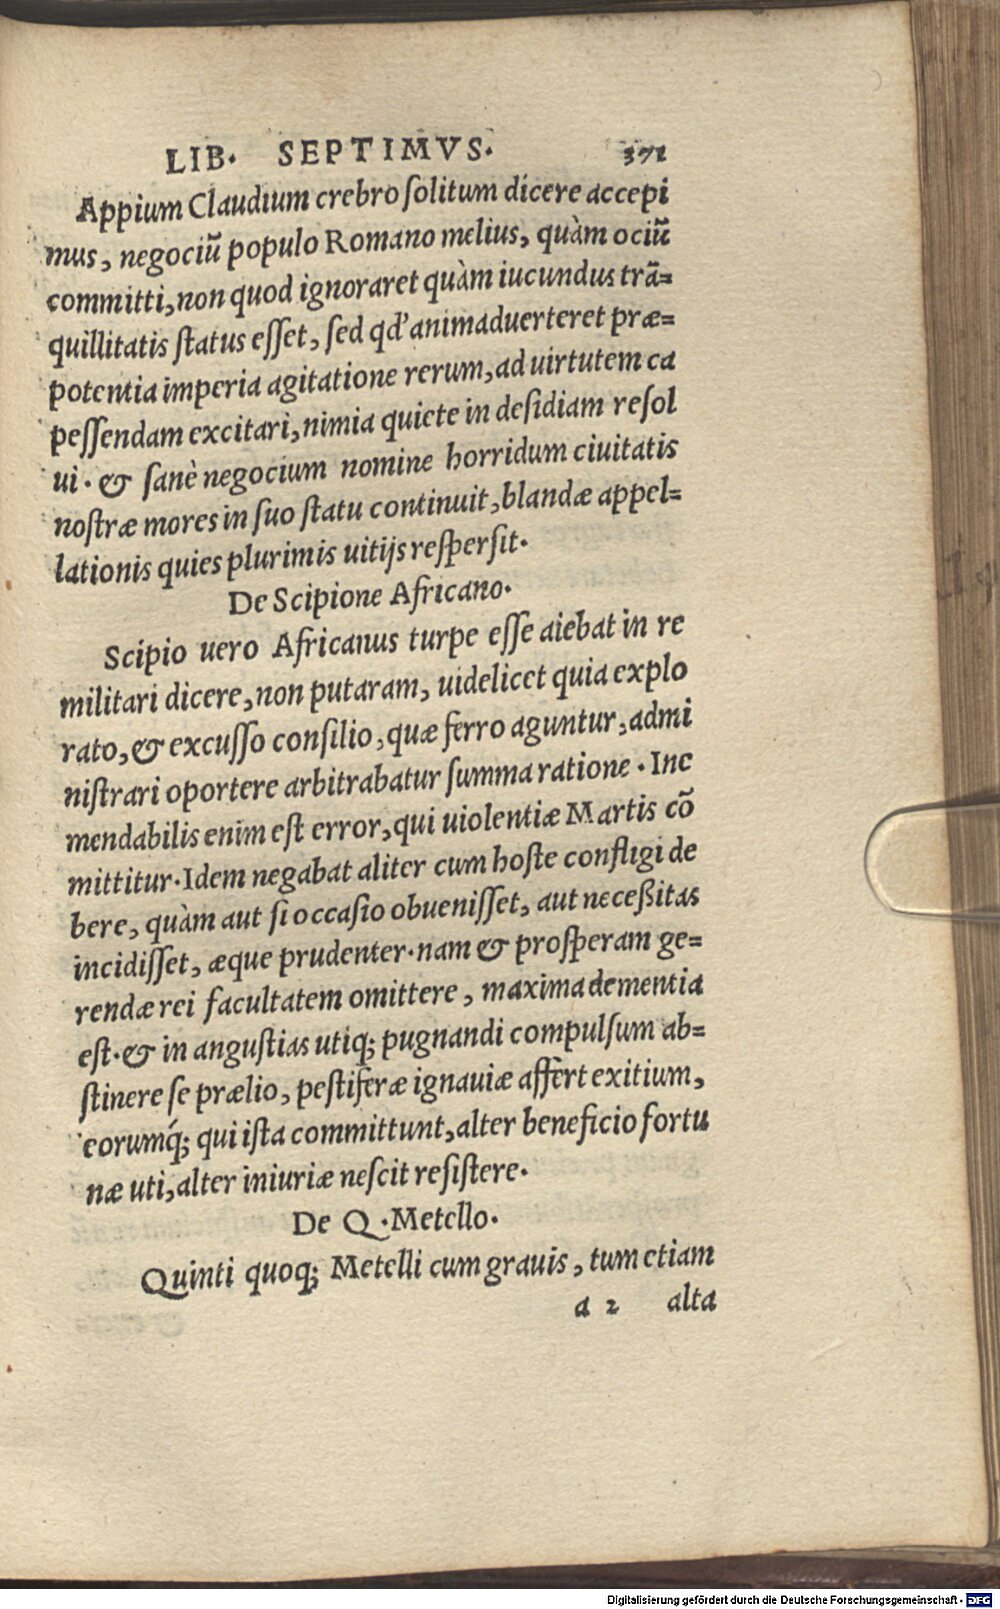 LIB. SEPTIMVS. 371
Appium Claudium crebro ſolitum dicere accepi
mus, negociũ populo Romano melius, quàm ociũ
committi, non quod ignoraret quàm iucundus trã=
quillitatis ſtatus eſſet, ſed qd' animaduerteret præ=
potentia imperia agitatione rerum, ad uirtutem ca
peſſendam excitari, nimia quiete in deſidiam reſol
ui. & ſanè negocium nomine horridum ciuitatis
noſtræ mores in ſuo ſtatu continuit, blandæ appel=
lationis quies plurimis uitijs reſperſit.
De Scipione Africano.
Scipio uero Africanus turpe eſſe aiebat in re
militari dicere, non putaram, uidelicet quia explo
rato, & excuſſo conſilio, quæ ferro aguntur, admi
niſtrari oportere arbitrabatur ſumma ratione. Ine
mendabilis enim eſt error, qui uiolentiæ Martis cõ
mittitur. Idem negabat aliter cum hoſte confligi de
bere, quàm aut ſi occaſio obueniſſet, aut neceßitas
incidiſſet, æque prudenter. nam & proſperam ge=
rendæ rei facultatem omittere, maxima dementia
eſt. & in anguſtias utiq; pugnandi compulſum ab=
ſtinere ſe prælio, peſtiferæ ignauiæ affert exitium,
eorumq́; qui iſta committunt, alter beneficio fortu
næ uti, alter iniuriæ neſcit reſiſtere.
De Q. Metello.
Quinti quoq; Metelli cum grauis, tum etiam
a 2 alta
Digitalisierung gefördert durch die Deutsche Forschungsgemeinschaft - DFG